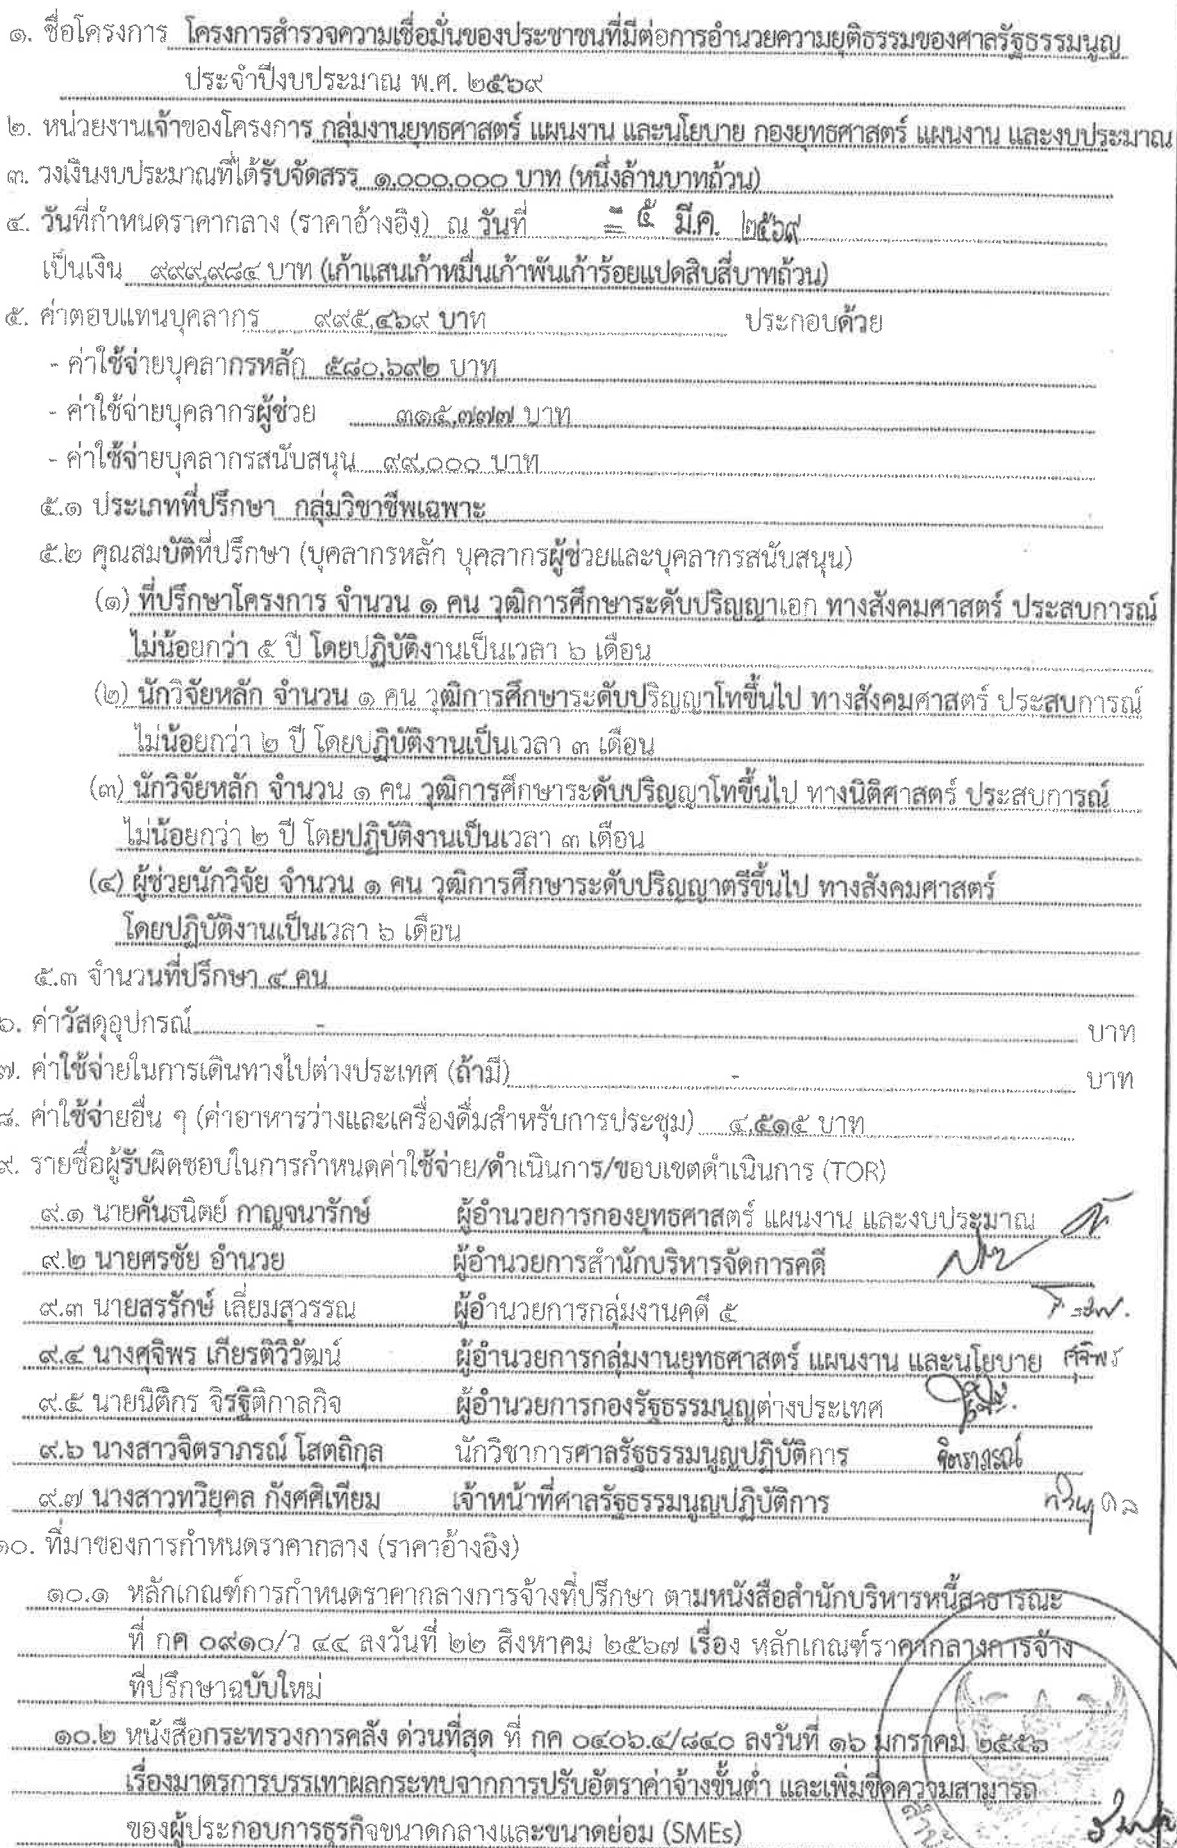 ๑. ชื่อโครงการ โครงการสำรวจความเชื่อมั่นของประชาชนที่มีต่อการอำนวยความยุติธรรมของศาลรัฐธรรมนูญ
ประจำปีงบประมาณ พ.ศ. ๒๕๖๙
๒. หน่วยงานเจ้าของโครงการ กลุ่มงานยุทธศาสตร์ แผนงาน และนโยบาย กองยุทธศาสตร์ แผนงาน และงบประมาณ
๓. วงเงินงบประมาณที่ได้รับจัดสรร ๑,๐๐๐,๐๐๐ บาท (หนึ่งล้านบาทถ้วน)
๔. วันที่กำหนดราคากลาง (ราคาอ้างอิง) ณ วันที่ - ๕ มี.ค. ๒๕๖๙
เป็นเงิน ๙๙๙,๙๘๔ บาท (เก้าแสนเก้าหมื่นเก้าพันเก้าร้อยแปดสิบสี่บาทถ้วน)
๕. ค่าตอบแทนบุคลากร ๙๙๕,๔๖๙ บาท ประกอบด้วย
- ค่าใช้จ่ายบุคลากรหลัก ๕๘๐,๖๙๒ บาท
- ค่าใช้จ่ายบุคลากรผู้ช่วย ๓๑๕,๗๗๗ บาท
- ค่าใช้จ่ายบุคลากรสนับสนุน ๙๙,๐๐๐ บาท
๕.๑ ประเภทที่ปรึกษา กลุ่มวิชาชีพเฉพาะ
๕.๒ คุณสมบัติที่ปรึกษา (บุคลากรหลัก บุคลากรผู้ช่วยและบุคลากรสนับสนุน)
(๑) ที่ปรึกษาโครงการ จำนวน ๑ คน วุฒิการศึกษาระดับปริญญาเอก ทางสังคมศาสตร์ ประสบการณ์
ไม่น้อยกว่า ๕ ปี โดยปฏิบัติงานเป็นเวลา ๖ เดือน
(๒) นักวิจัยหลัก จำนวน ๑ คน วุฒิการศึกษาระดับปริญญาโทขึ้นไป ทางสังคมศาสตร์ ประสบการณ์
ไม่น้อยกว่า ๒ ปี โดยปฏิบัติงานเป็นเวลา ๓ เดือน
(๓) นักวิจัยหลัก จำนวน ๑ คน วุฒิการศึกษาระดับปริญญาโทขึ้นไป ทางนิติศาสตร์ ประสบการณ์
ไม่น้อยกว่า ๒ ปี โดยปฏิบัติงานเป็นเวลา ๓ เดือน
(๔) ผู้ช่วยนักวิจัย จำนวน ๑ คน วุฒิการศึกษาระดับปริญญาตรีขึ้นไป ทางสังคมศาสตร์
โดยปฏิบัติงานเป็นเวลา ๖ เดือน
๕.๓ จำนวนที่ปรึกษา ๔ คน
๖. ค่าวัสดุอุปกรณ์ - บาท
๗. ค่าใช้จ่ายในการเดินทางไปต่างประเทศ (ถ้ามี) - บาท
๘. ค่าใช้จ่ายอื่น ๆ (ค่าอาหารว่างและเครื่องดื่มสำหรับการประชุม) ๔,๕๑๕ บาท
๙. รายชื่อผู้รับผิดชอบในการกำหนดค่าใช้จ่าย/ดำเนินการ/ขอบเขตดำเนินการ (TOR)
๙.๑ นายคันธนิตย์ กาญจนารักษ์ ผู้อำนวยการกองยุทธศาสตร์ แผนงาน และงบประมาณ
๙.๒ นายศรชัย อำนวย ผู้อำนวยการสำนักบริหารจัดการคดี
๙.๓ นายสรรักษ์ เลี่ยมสุวรรณ ผู้อำนวยการกลุ่มงานคดี ๕
๙.๔ นางศุจิพร เกียรติวิวัฒน์ ผู้อำนวยการกลุ่มงานยุทธศาสตร์ แผนงาน และนโยบาย ศุจิพร
๙.๕ นายนิติกร จิรฐิติกาลกิจ ผู้อำนวยการกองรัฐธรรมนูญต่างประเทศ
๙.๖ นางสาวจิตราภรณ์ โสตถิกุล นักวิชาการศาลรัฐธรรมนูญปฏิบัติการ จิตราภรณ์
๙.๗ นางสาวทวิยุคล กังศศิเทียม เจ้าหน้าที่ศาลรัฐธรรมนูญปฏิบัติการ ทวิยุคล
๑๐. ที่มาของการกำหนดราคากลาง (ราคาอ้างอิง)
๑๐.๑ หลักเกณฑ์การกำหนดราคากลางการจ้างที่ปรึกษา ตามหนังสือสำนักบริหารหนี้สาธารณะ
ที่ กค ๐๙๑๐/ว ๔๔ ลงวันที่ ๒๒ สิงหาคม ๒๕๖๗ เรื่อง หลักเกณฑ์ราคากลางการจ้าง
ที่ปรึกษาฉบับใหม่
๑๐.๒ หนังสือกระทรวงการคลัง ด่วนที่สุด ที่ กค ๐๔๐๖.๔/๘๔๐ ลงวันที่ ๑๖ มกราคม ๒๕๕๖
เรื่องมาตรการบรรเทาผลกระทบจากการปรับอัตราค่าจ้างขั้นต่ำ และเพิ่มขีดความสามารถ
ของผู้ประกอบการธุรกิจขนาดกลางและขนาดย่อม (SMEs)